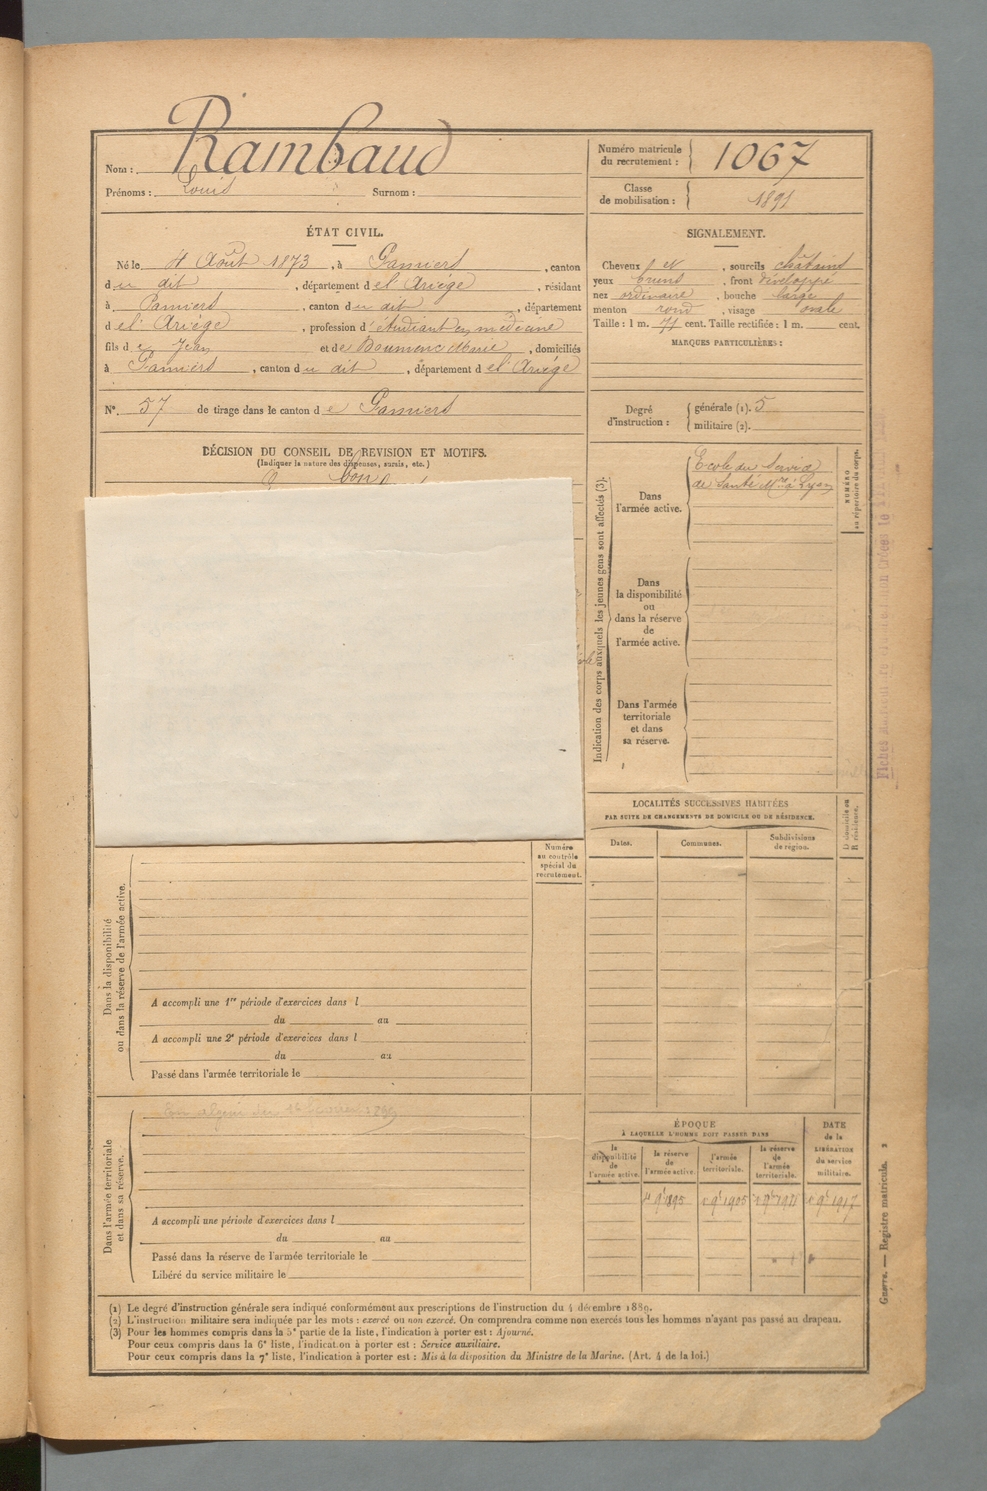 Nom : Rambaud
Prénoms : Louis Surnom :
Numéro matricule
du recrutement : 1067
Classe
de mobilisation : 1891
ÉTAT CIVIL.
Né le 4 Août 1873, à Pamiers, canton
du dit, département de l'Ariège, résidant
à Pamiers, canton du dit, département
de l'Ariège, profession d'étudiant en médecine
fils de Jean et de Boumenc Marie, domiciliés
à Pamiers, canton du dit, département de l'Ariège
N°. 57 de tirage dans le canton de Pamiers
DÉCISION DU CONSEIL DE REVISION ET MOTIFS.
(Indiquer la nature des dispenses, sursis, etc.)
bon
SIGNALEMENT.
Cheveux et, sourcils châtains
yeux bruns, front développé
nez ordinaire, bouche large
menton rond, visage ovale
Taille : 1 m. 71 cent. Taille rectifiée : 1 m. cent.
MARQUES PARTICULIÈRES :
Degré
d'instruction :
générale (1). 5
militaire (2).
Indication des corps auxquels les jeunes gens sont affectés (3).
Dans
l'armée active.
Ecole du Service
de Santé Mre à Lyon
NUMÉRO
au répertoire du corps.
Dans
la disponibilité
ou
dans la réserve
de
l'armée active.
Dans l'armée
territoriale
et dans
sa réserve.
LOCALITÉS SUCCESSIVES HABITÉES
PAR SUITE DE CHANGEMENTS DE DOMICILE OU DE RÉSIDENCE.
Dates. Communes. Subdivisions
de région.
D domicile ou
R résidence.
Numéro
au contrôle
spécial du
recrutement.
Dans la disponibilité
ou dans la réserve de l'armée active.
A accompli une 1re période d'exercices dans l
du au
A accompli une 2e période d'exercices dans l
du au
Passé dans l'armée territoriale le
Dans l'armée territoriale
et dans sa réserve.
A accompli une période d'exercices dans l
du au
Passé dans la réserve de l'armée territoriale le
Libéré du service militaire le
ÉPOQUE
À LAQUELLE L'HOMME DOIT PASSER DANS
la
disponibilité
de
l'armée active.
la réserve
de
l'armée active.
l'armée
territoriale.
la réserve
de
l'armée
territoriale.
DATE
de la
LIBÉRATION
du service
militaire.
1895 1905 1911 1917
(1) Le degré d'instruction générale sera indiqué conformément aux prescriptions de l'instruction du 4 décembre 1889.
(2) L'instruction militaire sera indiquée par les mots : exercé ou non exercé. On comprendra comme non exercés tous les hommes n'ayant pas passé au drapeau.
(3) Pour les hommes compris dans la 5e partie de la liste, l'indication à porter est : Ajourné.
Pour ceux compris dans la 6e liste, l'indication à porter est : Service auxiliaire.
Pour ceux compris dans la 7e liste, l'indication à porter est : Mis à la disposition du Ministre de la Marine. (Art. 4 de la loi.)
Guerre. — Registre matricule. 2